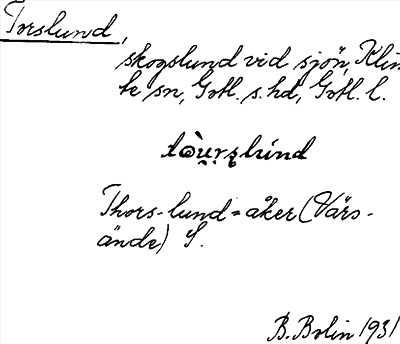 Torslund,
skogslund vid sjön, Klin-
te sn, Gotl. s. hd, Gotl. l.
Thors-lund-åker (Värs-
ände) S.
B. Bolin 1931